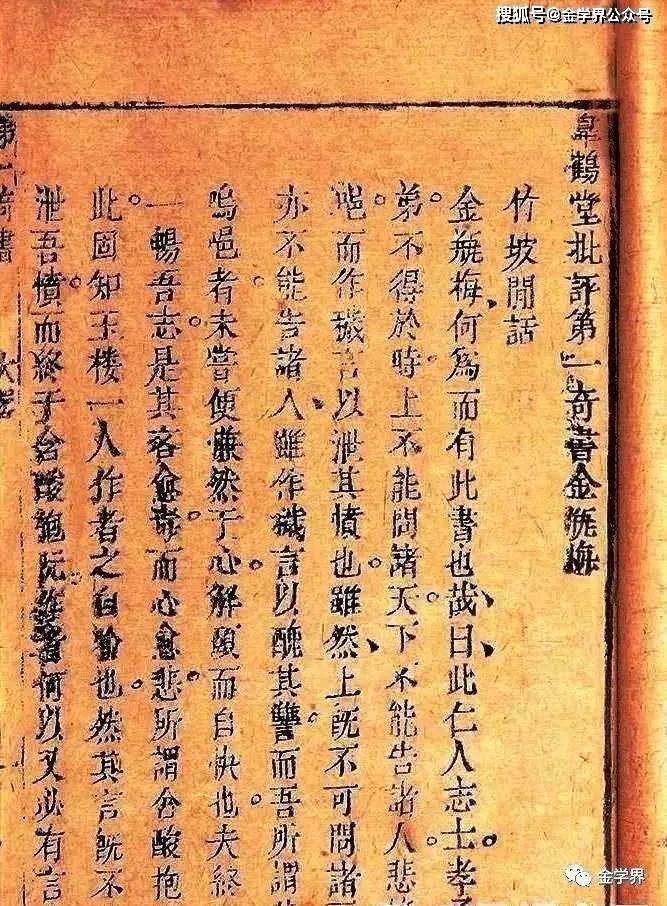 搜狐号@金学界公众号
皐鶴堂批評第一奇書金瓶梅
竹坡閒話
金瓶梅何爲而有此書也哉曰此仁人志士孝子
弟不得於時上不能問諸天下不能告諸人悲
而作穢言以泄其憤也雖然上既不可問諸
亦不能告諸人雖作穢言以醜其讐而吾所謂
嗚悒者未嘗便慊然于心解頤而自快也夫終
一暢吾志是其言愈毒而心愈悲所謂含酸抱
此固知玉楼一人作者之自喻也然其言既不
泄吾憤而終于含酸抱阮作者何以又必有言
第一奇書
金学界